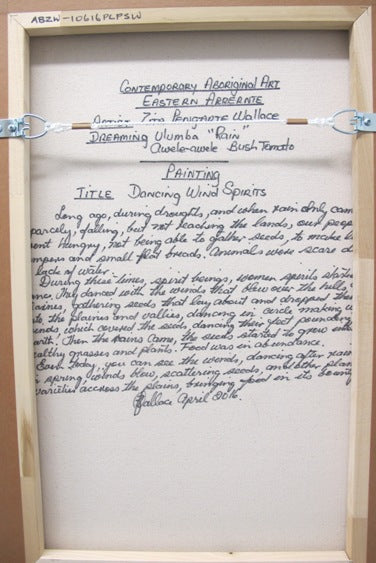 ABZW-10616PLPSW
Contemporory Aboriginal Art
Eastern Arrernte
Artist Zita Pengarte Wallace
Dreaming Ulumba "Rain"
awele-awele Bush Tomato
Painting
Title Dancing Wind Spirits
Long ago, during droughts, and when rain only cam
parcely, falling, but not reaching the lands, our peop
ent hungry, not being able to gather seeds, to make
mpers and small flat breads. Animals were scare d
lack of water.
During these times, spirit beings, women spirits
nce. They danced with the winds that blew over the hills,
laines, gathering seeds that lay about and dropped the
to the plaines and vallies, dancing in circle making
inds, which covered the seeds dancing their feet pounding
arth. Then the rains came, the seeds started to grow into
althy grasses and plants. Food was in abundance.
Even today, you can see the winds, dancing after rain
spring winds blow, scattering seeds, and other plan
varieties accross the plains, bringing food in its beauty
Wallace April 2016.